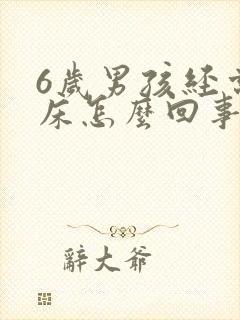 6歲男孩經常
床怎麼回事
辭大爺